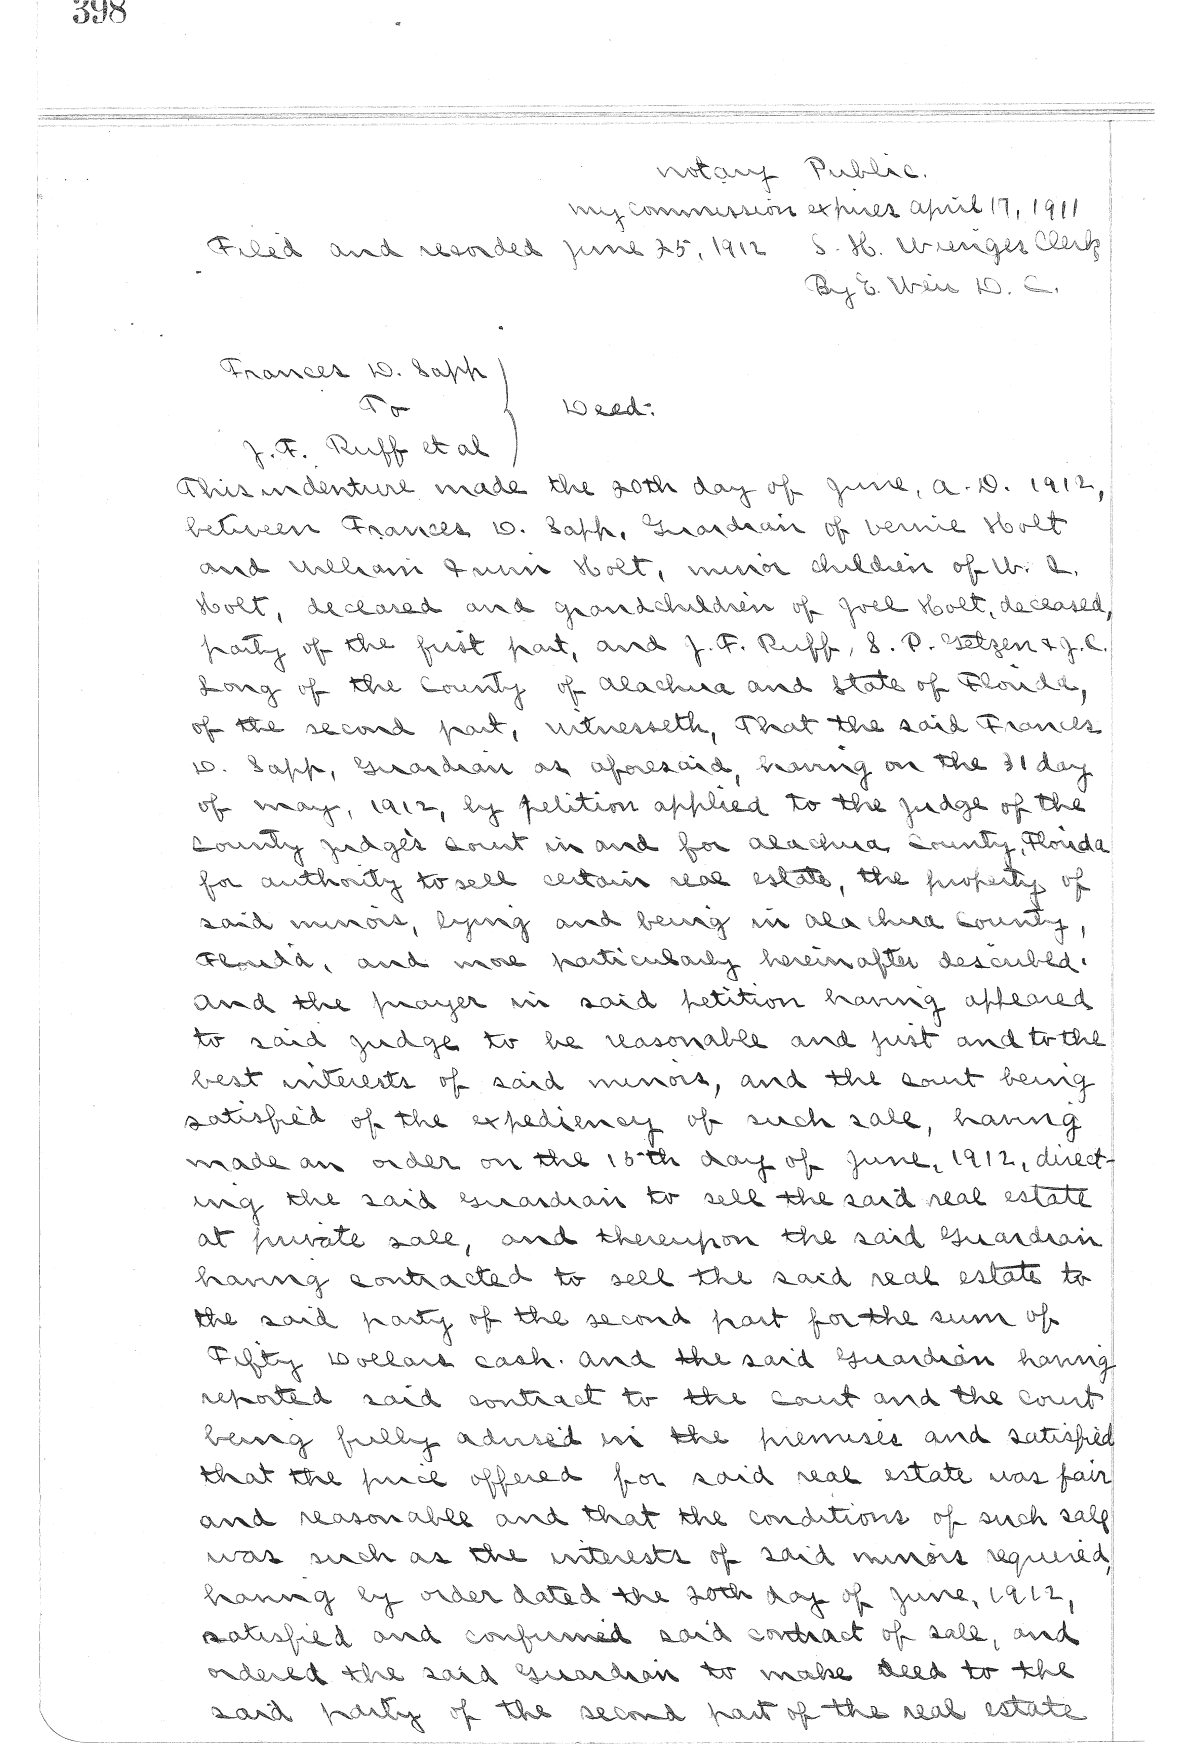 398
Notary Public.
My commission expires April 17, 1911
Filed and recorded June 25, 1912 S. H. Wienges Clerk
By E. Weir D. C.
Frances D. Sapp
To Deed:
J. F. Ruff et al
This indenture made the 20th day of June, A. D. 1912,
between Frances D. Sapp, Guardian of Vernie Holt
and William Holt, minor children of W. L.
Holt, deceased and grandchildren of Joel Holt, deceased,
party of the first part, and J. F. Ruff, S. P. Getzen & J. C.
Long of the County of Alachua and State of Florida,
of the second part, witnesseth, That the said Frances
D. Sapp, Guardian as aforesaid, having on the 31 day
of May, 1912, by petition applied to the Judge of the
County Judge's Court in and for Alachua County, Florida
for authority to sell certain real estate, the property of
said minors, lying and being in Alachua County,
Florida, and more particularly hereinafter described.
And the prayer in said petition having appeared
to said Judge to be reasonable and just and to the
best interests of said minors, and the court being
satisfied of the expediency of such sale, having
made an order on the 15th day of June, 1912, direct-
ing the said Guardian to sell the said real estate
at private sale, and thereupon the said Guardian
having contracted to sell the said real estate to
the said party of the second part for the sum of
Fifty Dollars cash. And the said Guardian having
reported said contract to the court and the court
being fully advised in the premises and satisfied
that the price offered for said real estate was fair
and reasonable and that the conditions of such sale
was such as the interests of said minors required,
having by order dated the 20th day of June, 1912,
satisfied and confirmed said contract of sale, and
ordered the said Guardian to make deed to the
said party of the second part of the real estate